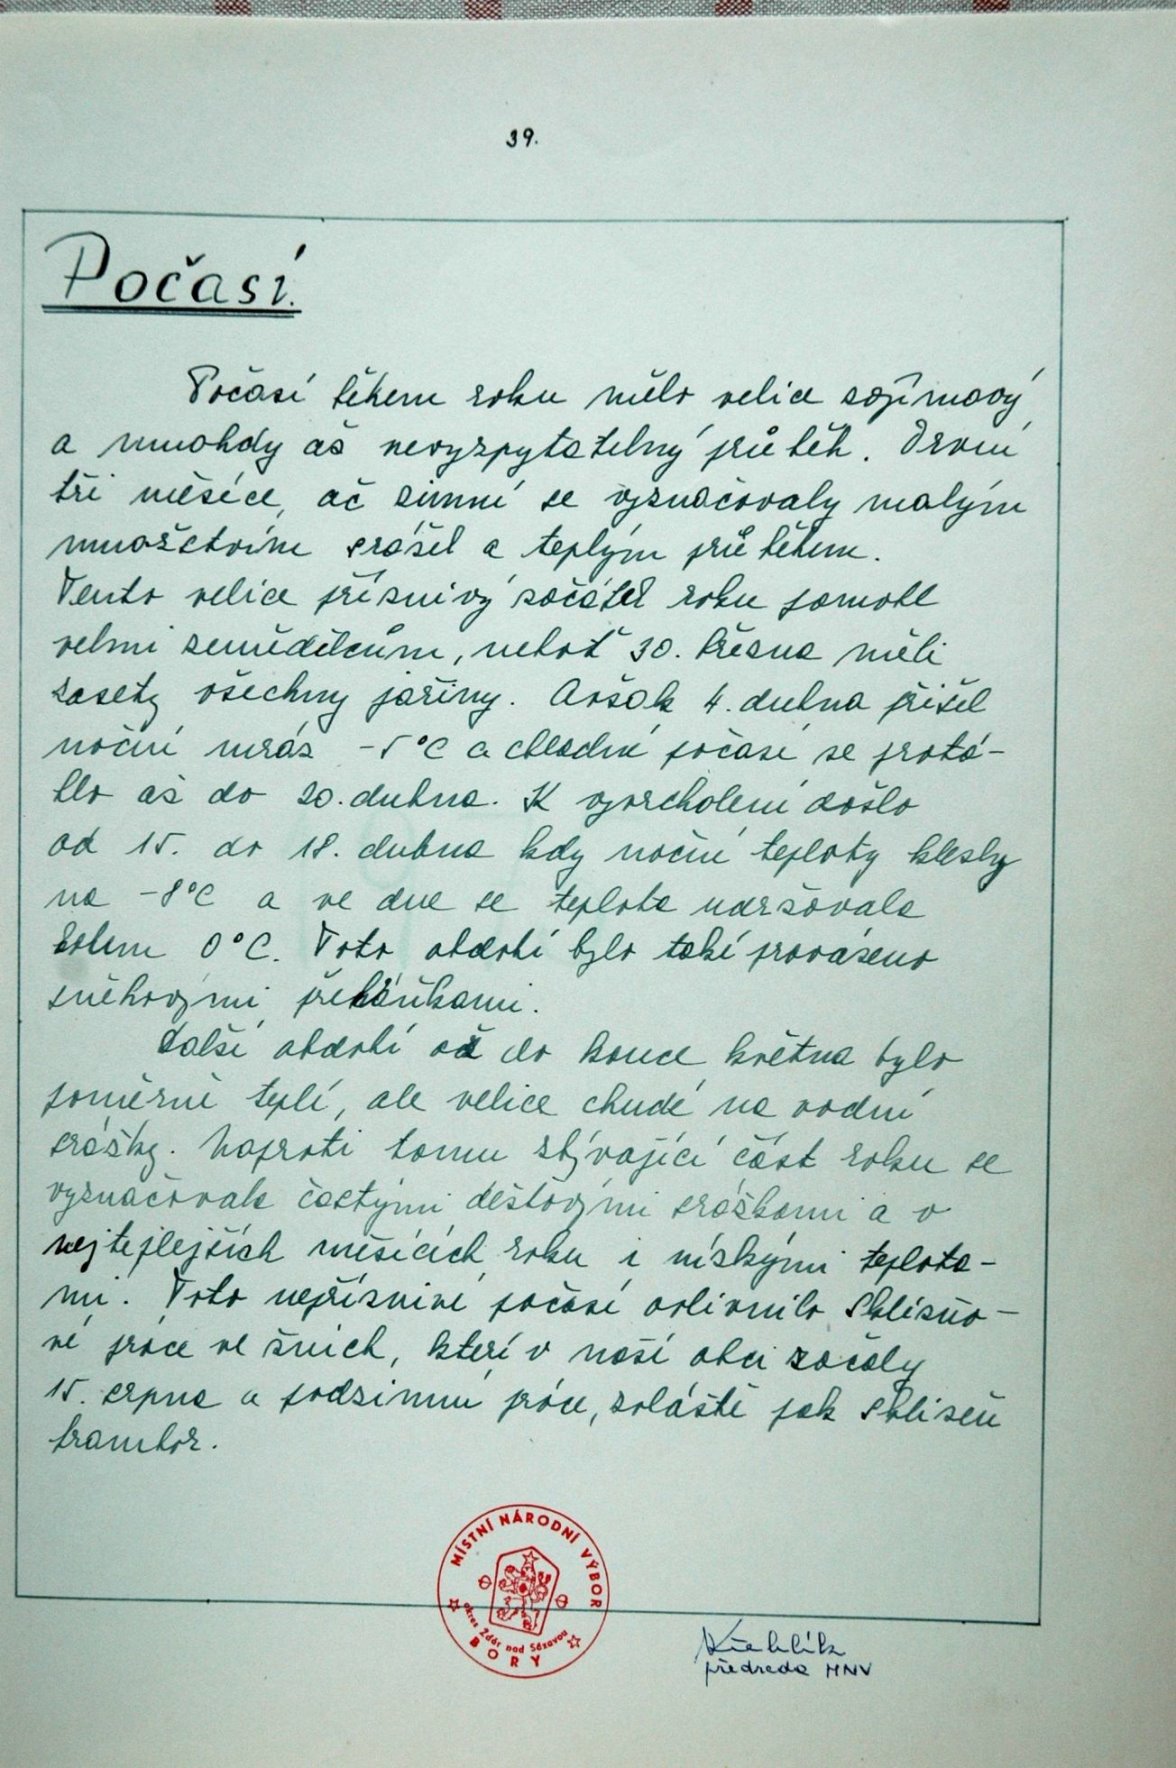 39.
Počasí.
Počasí během roku mělo velice zajímavý
a mnohdy až nevyzpytatelný průběh. První
tři měsíce, ač zimní se vyznačovaly malým
množstvím srážek a teplým průběhem.
Tento velice příznivý začátek roku pomohl
velmi zemědělcům, neboť 30. března měli
zasety všechny jařiny. Avšak 4. dubna přišel
noční mráz -5°C a chladné počasí se protá-
hlo až do 20. dubna. K vyvrcholení došlo
od 15. do 18. dubna kdy noční teploty klesly
na -8°C a ve dne se teplota udržovala
kolem 0°C. Toto období bylo také provázeno
sněhovými přeháňkami.
Další období až do konce května bylo
poměrně teplé, ale velice chudé na vodní
srážky. Naproti tomu zbývající část roku se
vyznačovala častými dešťovými srážkami a v
nejteplejších měsících roku i nízkými teplota-
mi. Toto nepříznivé počasí ovlivnilo sklizňo-
vé práce ve žních, které v naší obci začaly
15. srpna a podzimní práce, zvláště pak sklizeň
brambor.
MÍSTNÍ NÁRODNÍ VÝBOR
okres Žďár nad Sázavou
BORY
předseda MNV